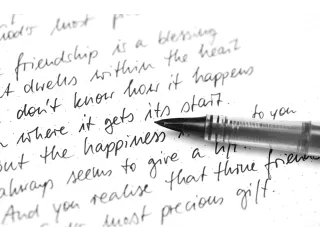 most p
friendship is a blessing
t dwells within the heart
don't know how it happens
where it gets its start.
out the happiness to you
always seems to give a
And you realise that those
most precious gift.